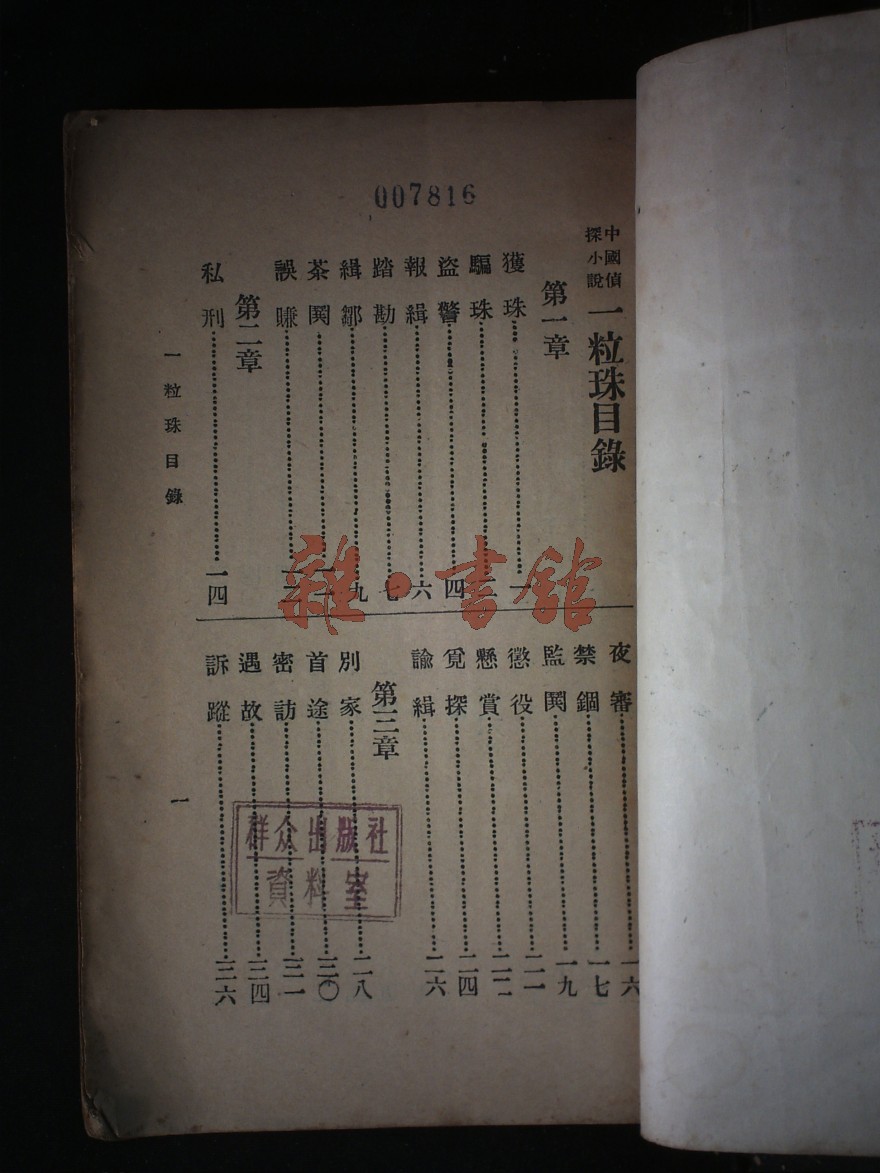 007816
中國偵探小說
一粒珠目錄
第一章
獲珠 一
騙珠
盜警 四
報緝 六
踏勘 七
緝鄒 九
茶鬨
誤賺
第二章
私刑 一四
夜審 一六
禁錮 一七
監鬨 一九
懲役 二一
懸賞 二二
覓探 二四
諭緝 二六
第三章
別家 二八
首途 三〇
密訪 三一
遇故 三四
訴蹤 三六
一粒珠目錄
一
群众出版社
資料室
雜·書館